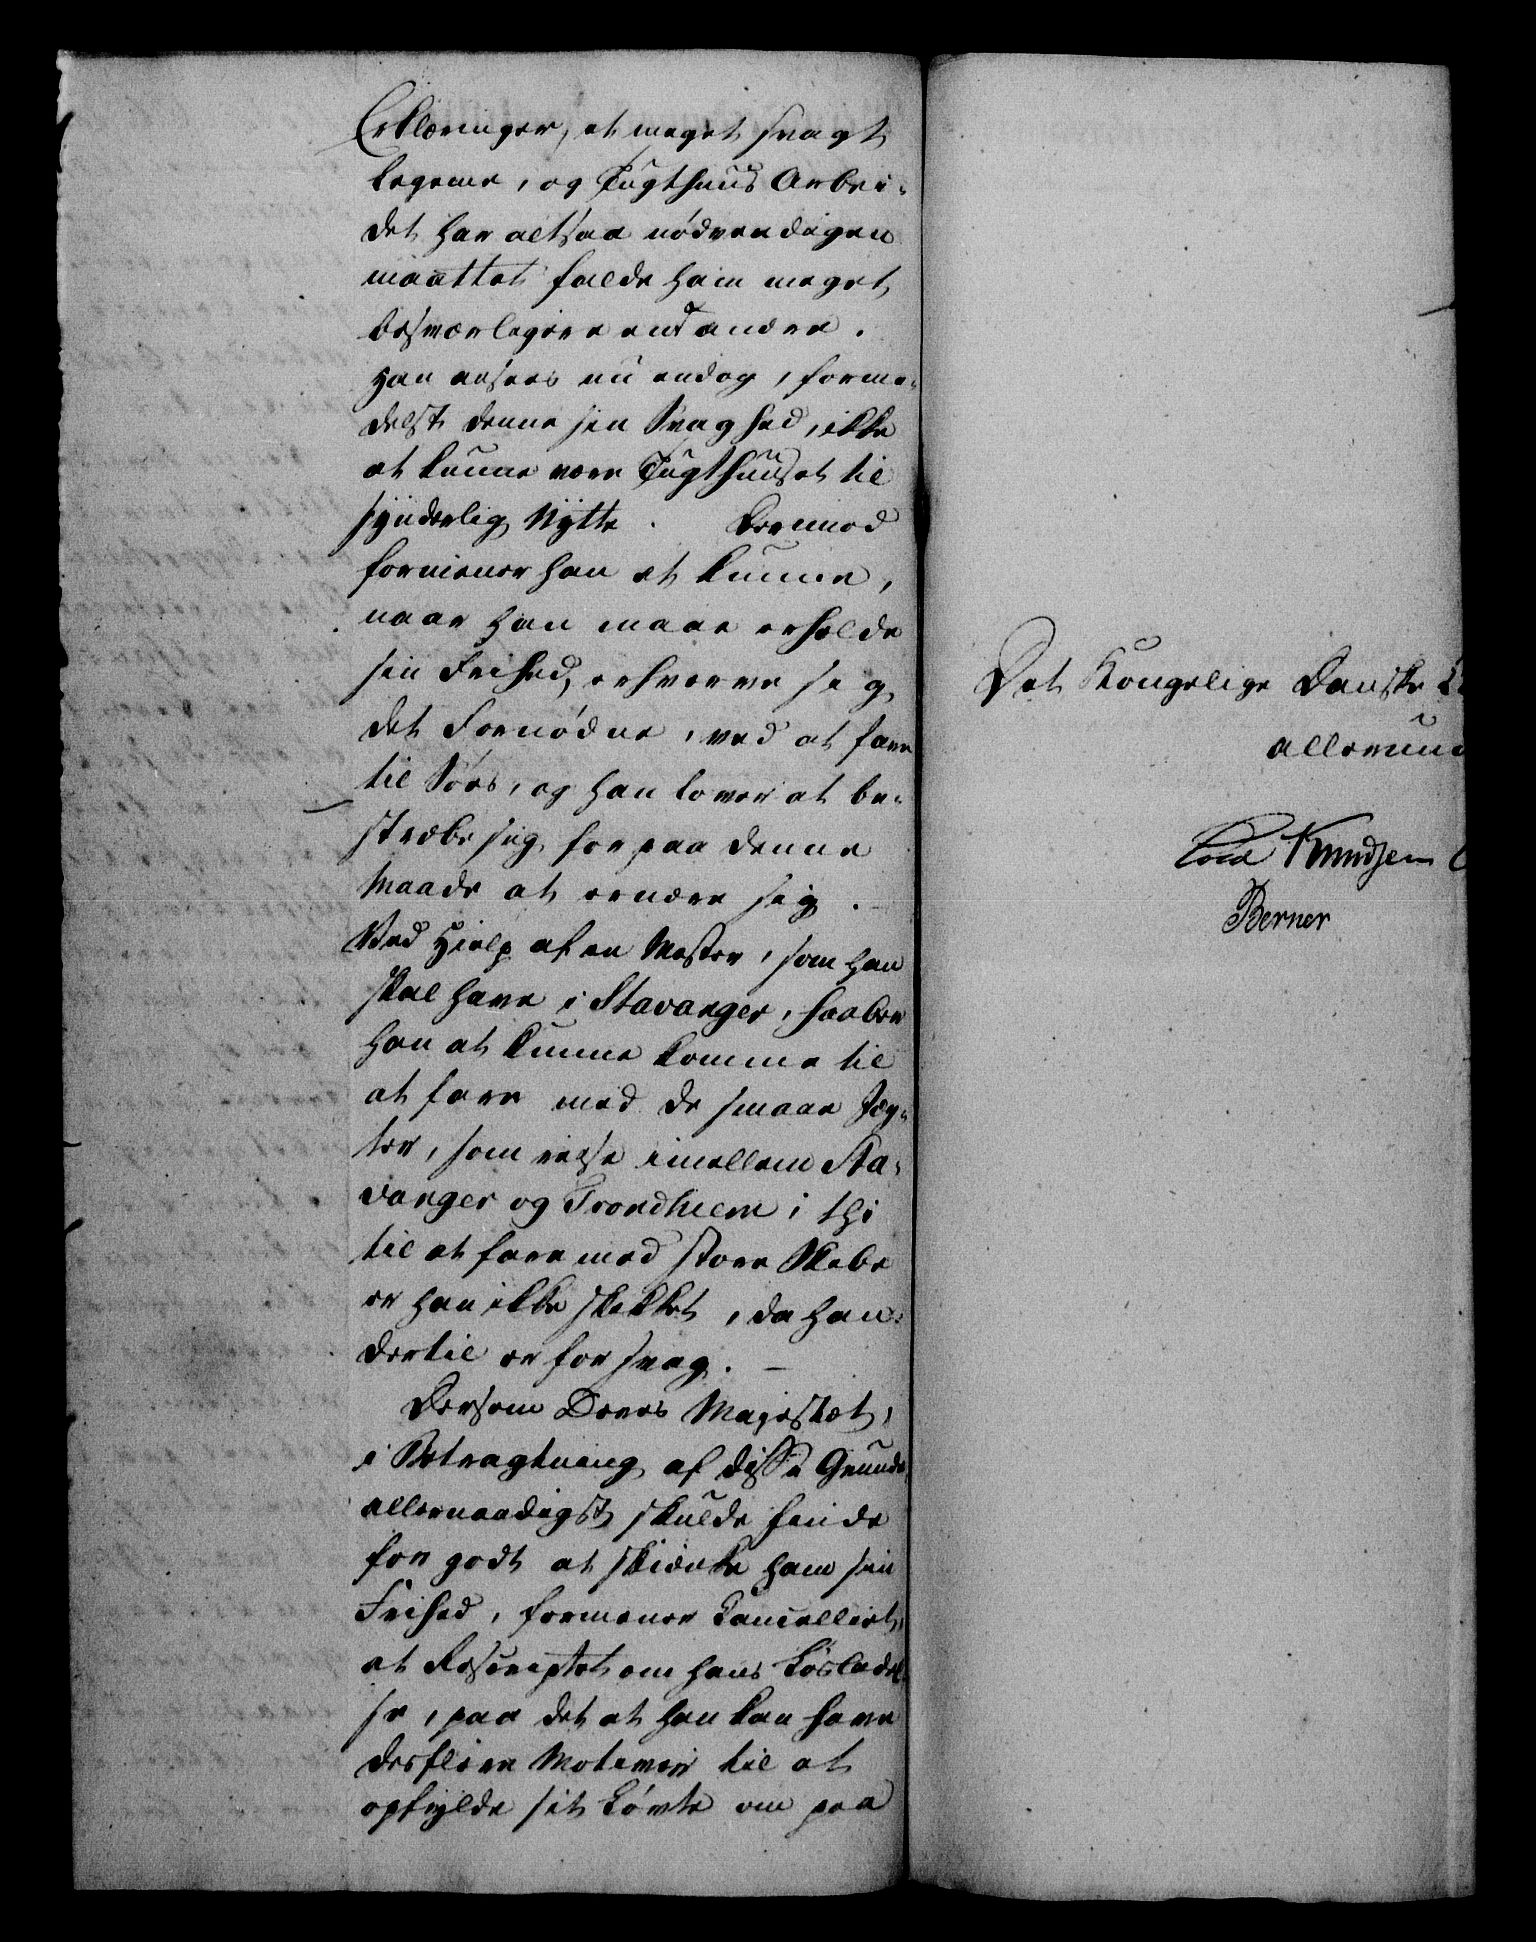 Erklæringer, et meget svagt
Legeme, og Tugthuus Arbei-
det har altsaa nødvendigen
maattet falde ham meget
besværligere end andre.
Han ansees nu endog, forme-
delst denne sin Svaghed, ikke
at kunne være Tugthuuset til
synderlig Nytte. Derimod
formener han at kunne,
naar han maae erholde
sin Friehed, erhverve sig
det Fornødne, ved at fare
til Søes, og han lover at be-
stræbe sig for paa denne
Maade at ernære sig.
Ved Hielp af en Moster, som han
skal have i Stavanger, haaber
han at kunne komme til
at fare med de smaae Jæg-
ter, som reise imellem Sta-
vanger og Trondhiem; thi
til at fare med store Skibe
er han ikke skikket, da han
dertil er for svag. —
Dersom Deres Majestæt,
i Betragtning af disse Grunde
allernaadigst skulde finde
for godt at skienke ham sin
Frihed, formener Cancelliet,
at Rescriptet om hans Løsladel-
se, paa det at han kan have
desfleere Motiver til at
opfylde sit Løvte om paa
Det Kongelige Danske
allerun
Knudsen
Berner